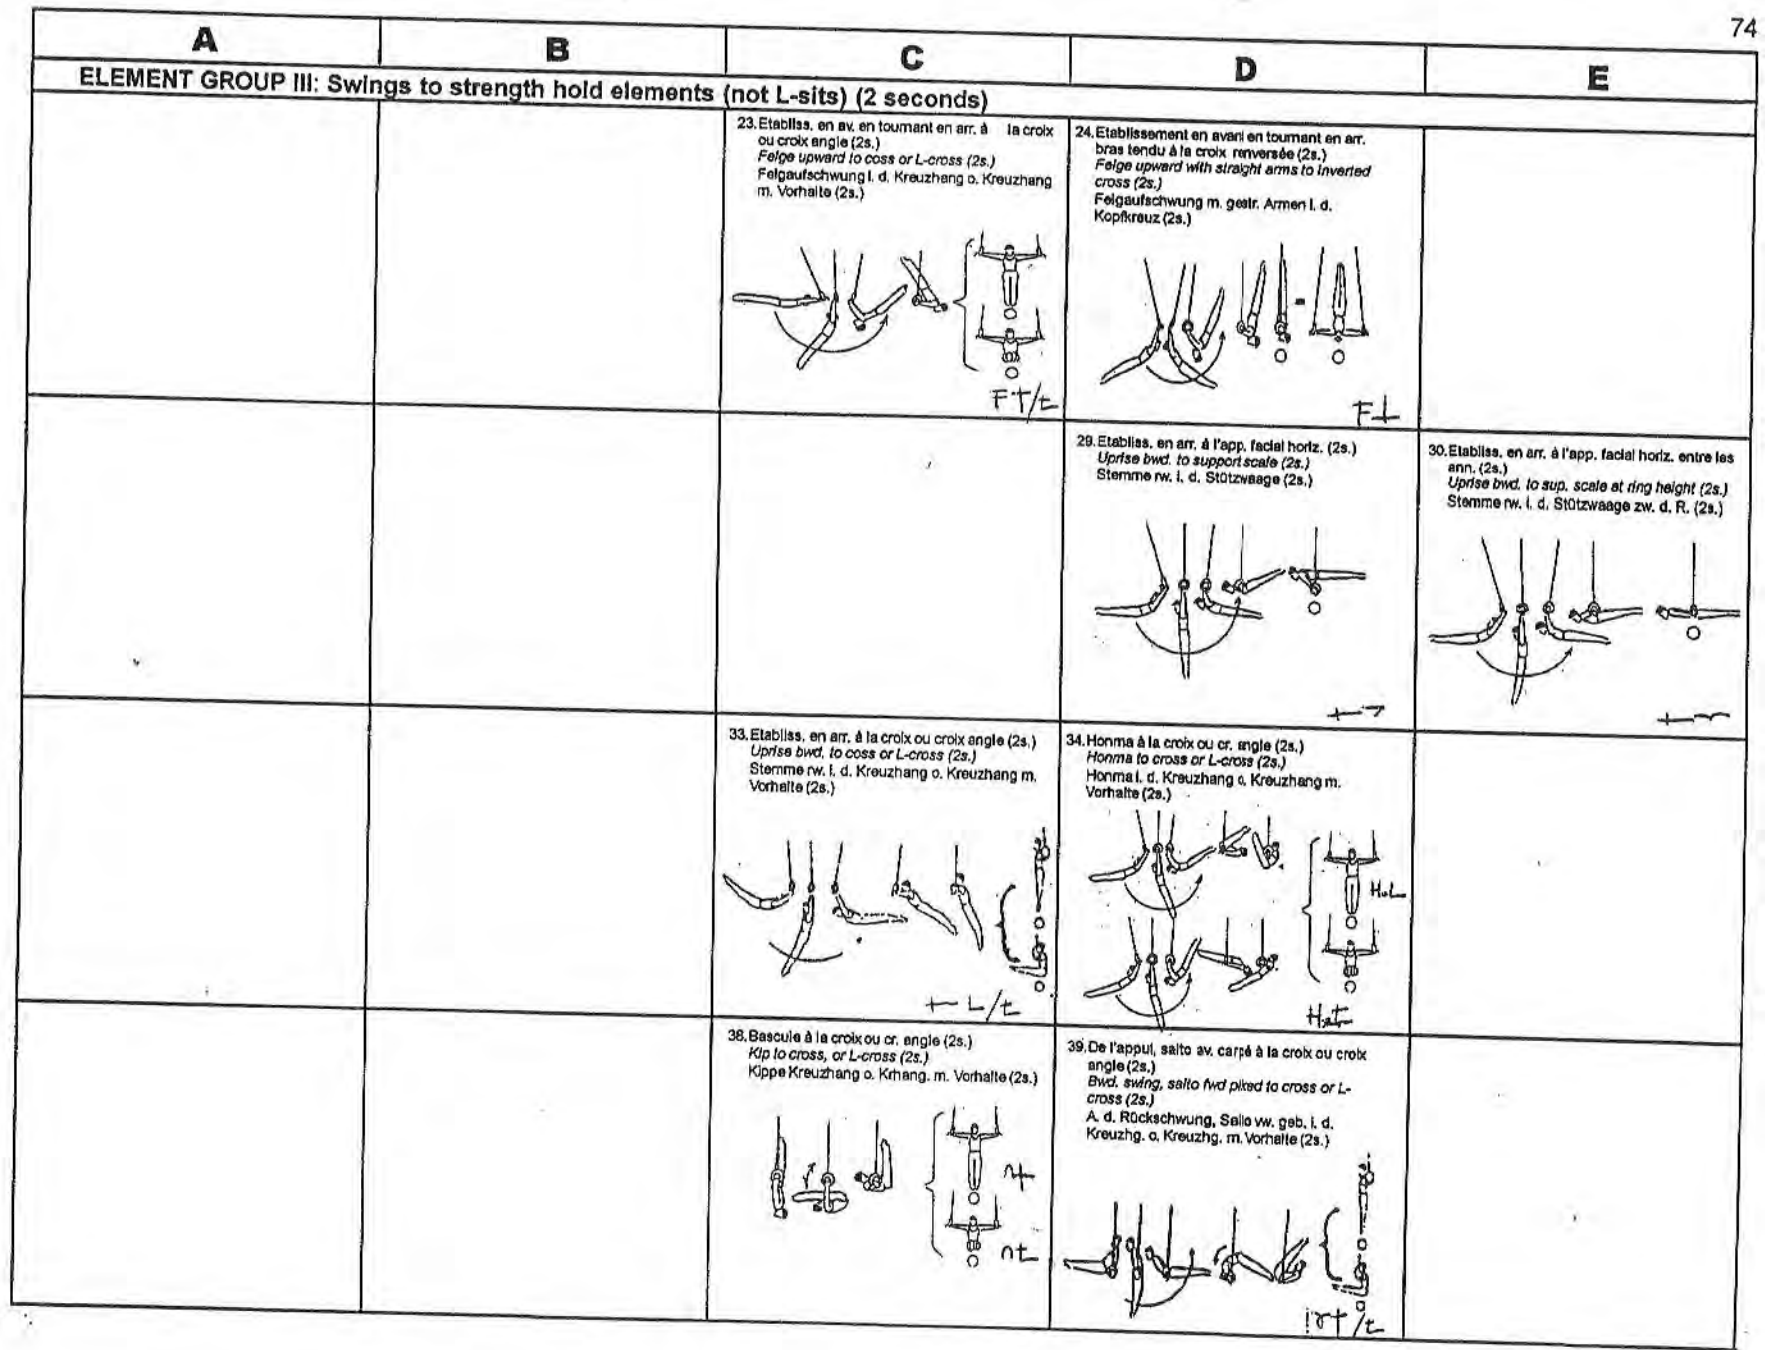 74
A B C D E
ELEMENT GROUP III: Swings to strength hold elements (not L-sits) (2 seconds)
23. Etabliss. en av. en tournant en arr. à la croix
ou croix angle (2s.)
Felge upward to coss or L-cross (2s.)
Felgaufschwung i. d. Kreuzhang o. Kreuzhang
m. Vorhalte (2s.)
24. Etablissement en avant en tournant en arr.
bras tendu à la croix renversée (2s.)
Felge upward with straight arms to inverted
cross (2s.)
Felgaufschwung m. gestr. Armen i. d.
Kopfkreuz (2s.)
29. Etabliss. en arr. à l'app. facial horiz. (2s.)
Uprise bwd. to support scale (2s.)
Stemme rw. i. d. Stützwaage (2s.)
30. Etabliss. en arr. à l'app. facial horiz. entre les
ann. (2s.)
Uprise bwd. to sup. scale at ring height (2s.)
Stemme rw. i. d. Stützwaage zw. d. R. (2s.)
33. Etabliss. en arr. à la croix ou croix angle (2s.)
Uprise bwd. to coss or L-cross (2s.)
Stemme rw. i. d. Kreuzhang o. Kreuzhang m.
Vorhalte (2s.)
34. Honma à la croix ou cr. angle (2s.)
Honma to cross or L-cross (2s.)
Honma i. d. Kreuzhang o. Kreuzhang m.
Vorhalte (2s.)
38. Bascule à la croix ou cr. angle (2s.)
Kip to cross, or L-cross (2s.)
Kippe Kreuzhang o. Krhang. m. Vorhalte (2s.)
39. De l'appui, salto av. carpé à la croix ou croix
angle (2s.)
Bwd. swing, salto fwd piked to cross or L-
cross (2s.)
A. d. Rückschwung, Salto vw. geb. i. d.
Kreuzhg. o. Kreuzhg. m. Vorhalte (2s.)